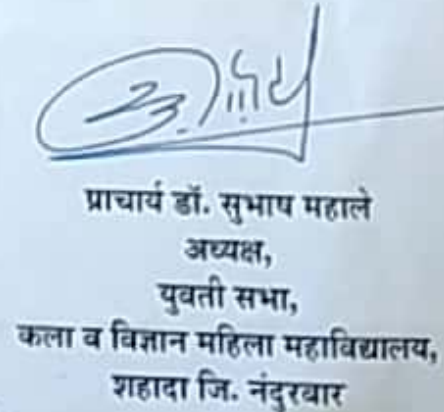 प्राचार्य डॉ. सुभाष महाले
अध्यक्ष,
युवती सभा,
कला व विज्ञान महिला महाविद्यालय,
शहादा जि. नंदुरबार